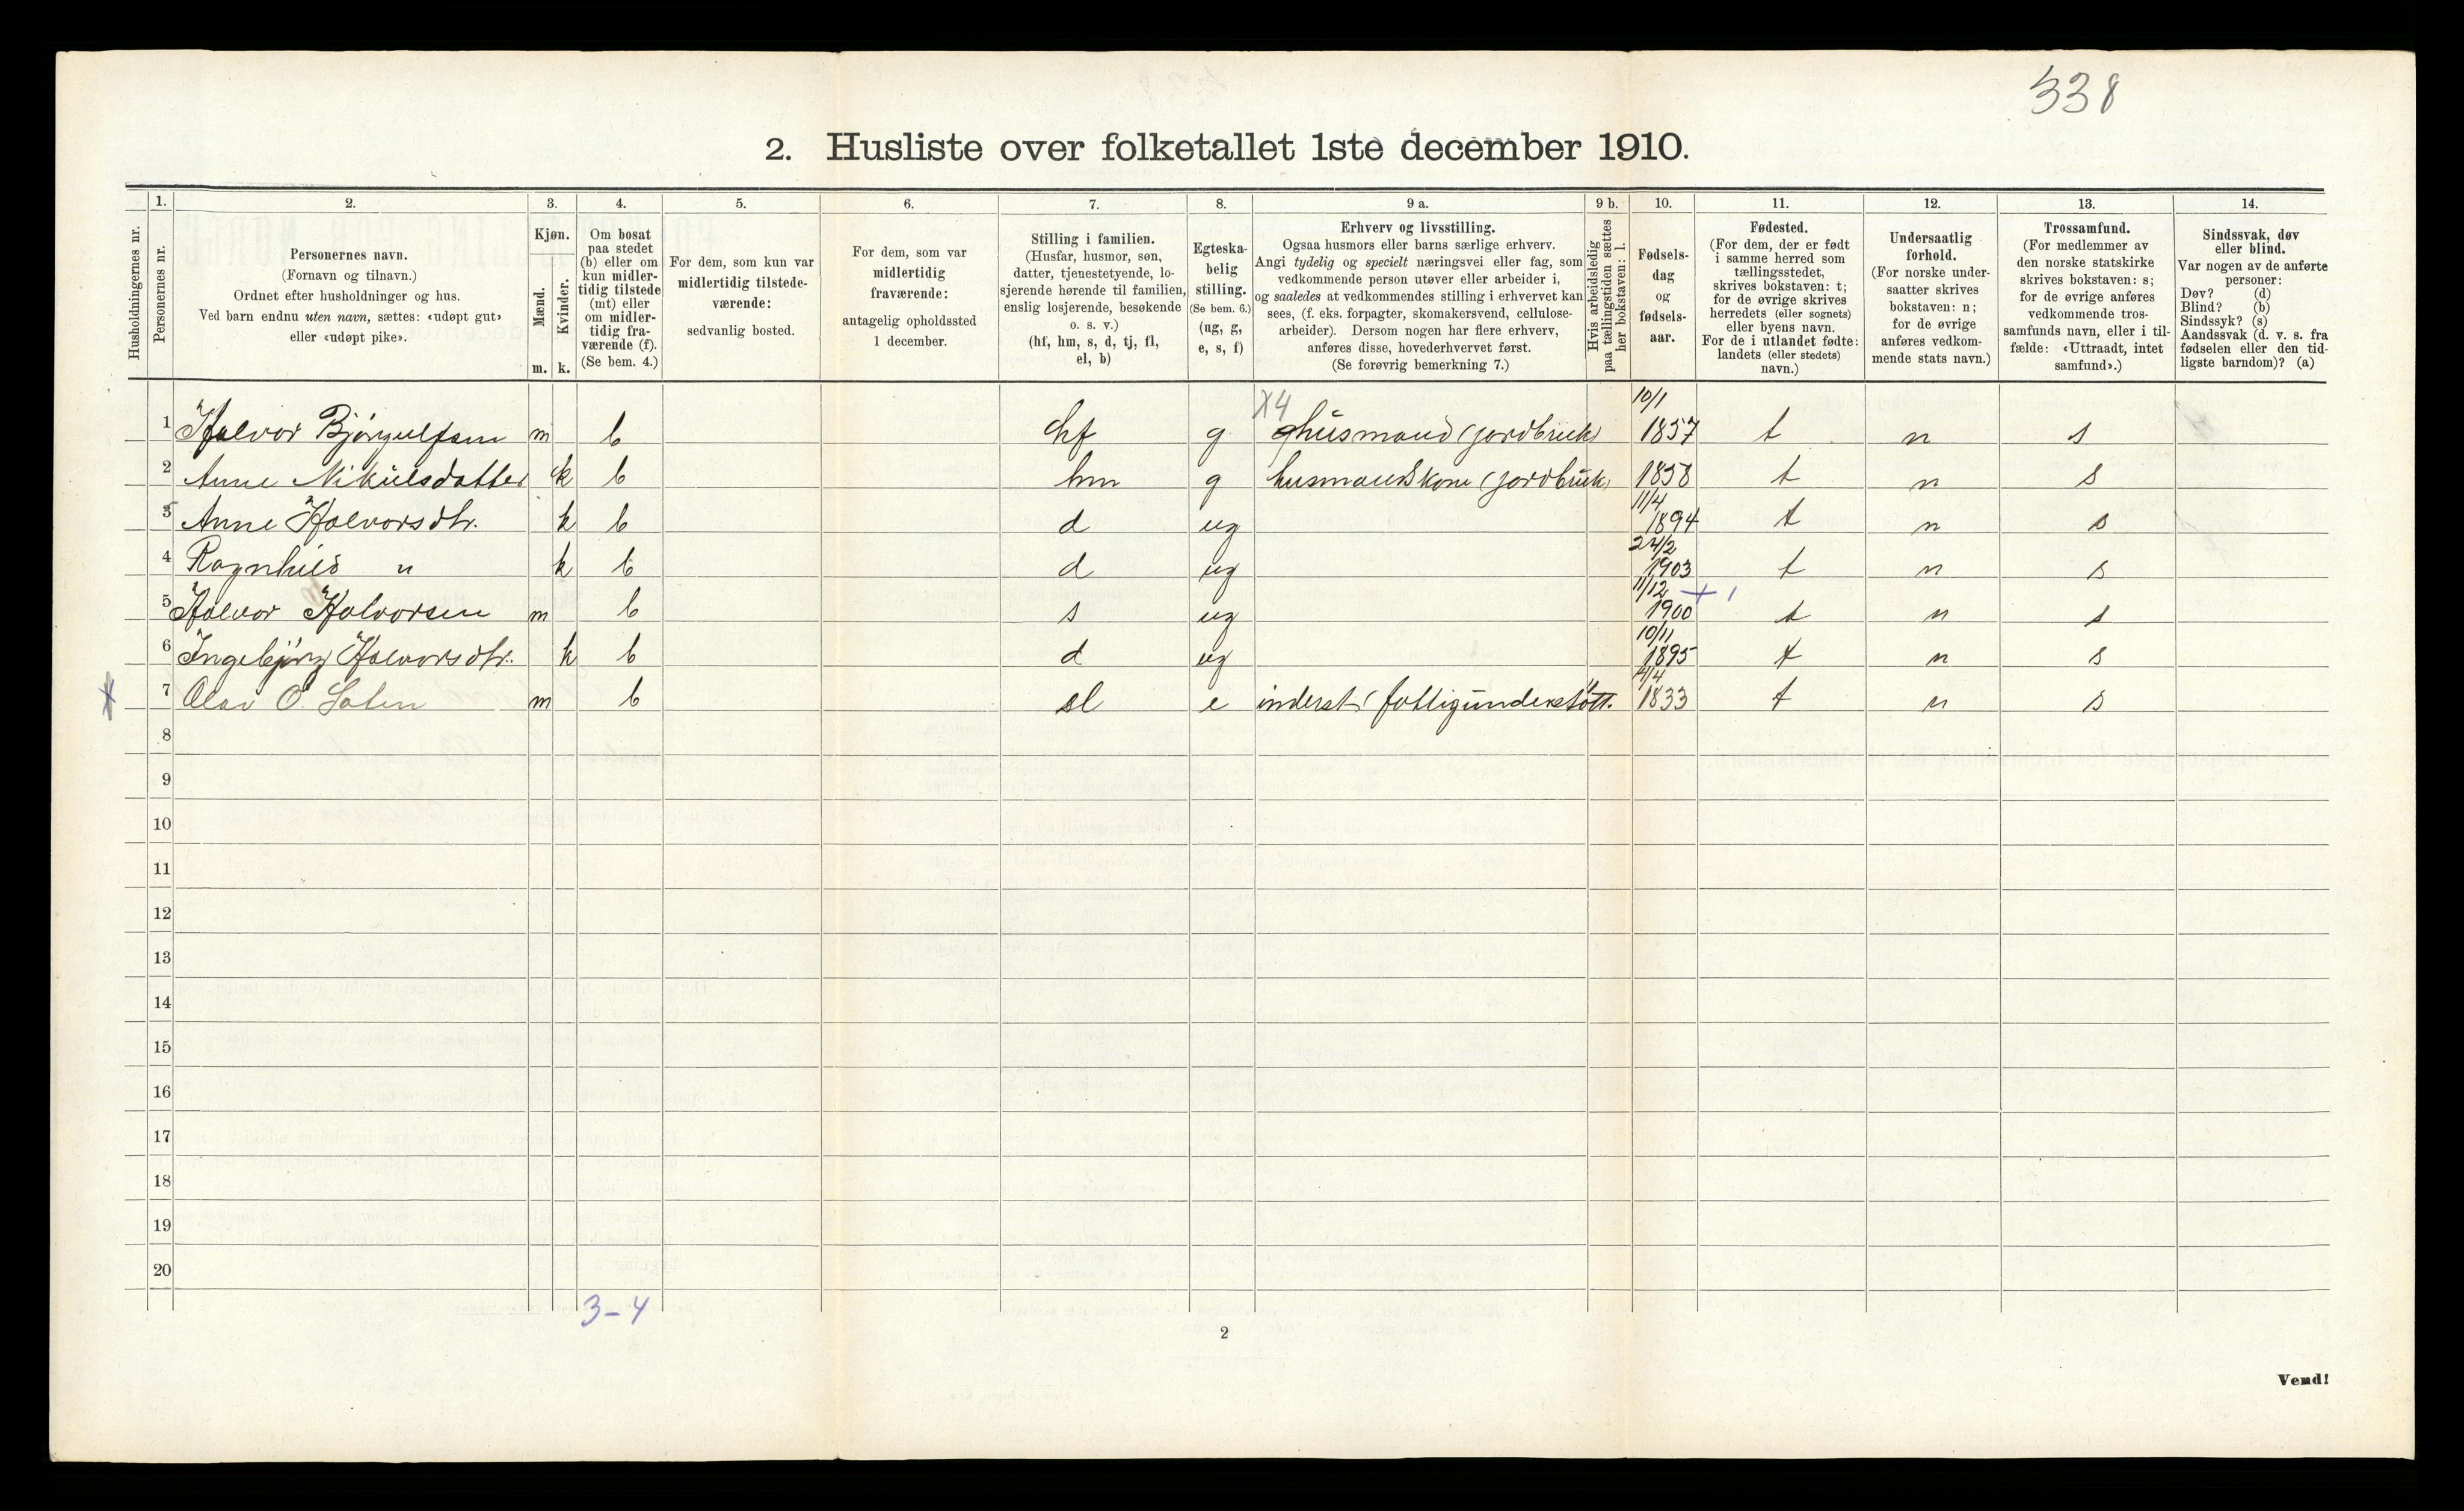 338
2. Husliste over folketallet 1ste december 1910.
Husholdningernes nr.
1.
Personernes nr.
2.
Personernes navn.
(Fornavn og tilnavn.)
Ordnet efter husholdninger og hus.
Ved barn endnu uten navn, sættes: «udøpt gut»
eller «udøpt pike».
3.
Kjøn.
Mænd.
Kvinder.
m. k.
4.
Om bosat
paa stedet
(b) eller om
kun midler-
tidig tilstede
(mt) eller
om midler-
tidig fra-
værende (f).
(Se bem. 4.)
5.
For dem, som kun var
midlertidig tilstede-
værende:
sedvanlig bosted.
6.
For dem, som var
midlertidig
fraværende:
antagelig opholdssted
1 december.
7.
Stilling i familien.
(Husfar, husmor, søn,
datter, tjenestetyende, lo-
sjerende hørende til familien,
enslig losjerende, besøkende
o. s. v.)
(hf, hm, s, d, tj, fl,
el, b)
8.
Egteska-
belig
stilling.
(Se bem. 6.)
(ug, g,
e, s, f)
9 a.
Erhverv og livsstilling.
Ogsaa husmors eller barns særlige erhverv.
Angi tydelig og specielt næringsvei eller fag, som
vedkommende person utøver eller arbeider i,
og saaledes at vedkommendes stilling i erhvervet kan
sees, (f. eks. forpagter, skomakersvend, cellulose-
arbeider). Dersom nogen har flere erhverv,
anføres disse, hovederhvervet først.
(Se forøvrig bemerkning 7.)
9 b.
Hvis arbeidsledig
paa tællingstiden sættes
her bokstaven: l.
10.
Fødsels-
dag
og
fødsels-
aar.
11.
Fødested.
(For dem, der er født
i samme herred som
tællingsstedet,
skrives bokstaven: t;
for de øvrige skrives
herredets (eller sognets)
eller byens navn.
For de i utlandet fødte:
landets (eller stedets)
navn.)
12.
Undersaatlig
forhold.
(For norske under-
saatter skrives
bokstaven: n;
for de øvrige
anføres vedkom-
mende stats navn.)
13.
Trossamfund.
(For medlemmer av
den norske statskirke
skrives bokstaven: s;
for de øvrige anføres
vedkommende tros-
samfunds navn, eller i til-
fælde: «Uttraadt, intet
samfund».)
14.
Sindssvak, døv
eller blind.
Var nogen av de anførte
personer:
Døv? (d)
Blind? (b)
Sindssyk? (s)
Aandssvak (d. v. s. fra
fødselen eller den tid-
ligste barndom)? (a)
X4 10/1
1 Halvor Bjørgulfsen m b hf g husmand (jordbruk) 1857 t n s
2 Anne Nikulsdatter k b hm g husmandskone (jordbruk) 1858 t n s
11/4
3 Anne Halvorsdtr. k b d ug 1894 t n s
24/2
4 Ragnhild " k b d ug 1903 t n s
11/12 + 1
5 Halvor Halvorsen m b s ug 1900 t n s
10/11
6 Ingebjørg Halvorsdtr. k b d ug 1895 t n s
4/4
7 Olav O. m b el e inderst (fattigunderstøtt. 1833 t n s
8
9
10
11
12
13
14
15
16
17
18
19
20
3-4
2
Vend!